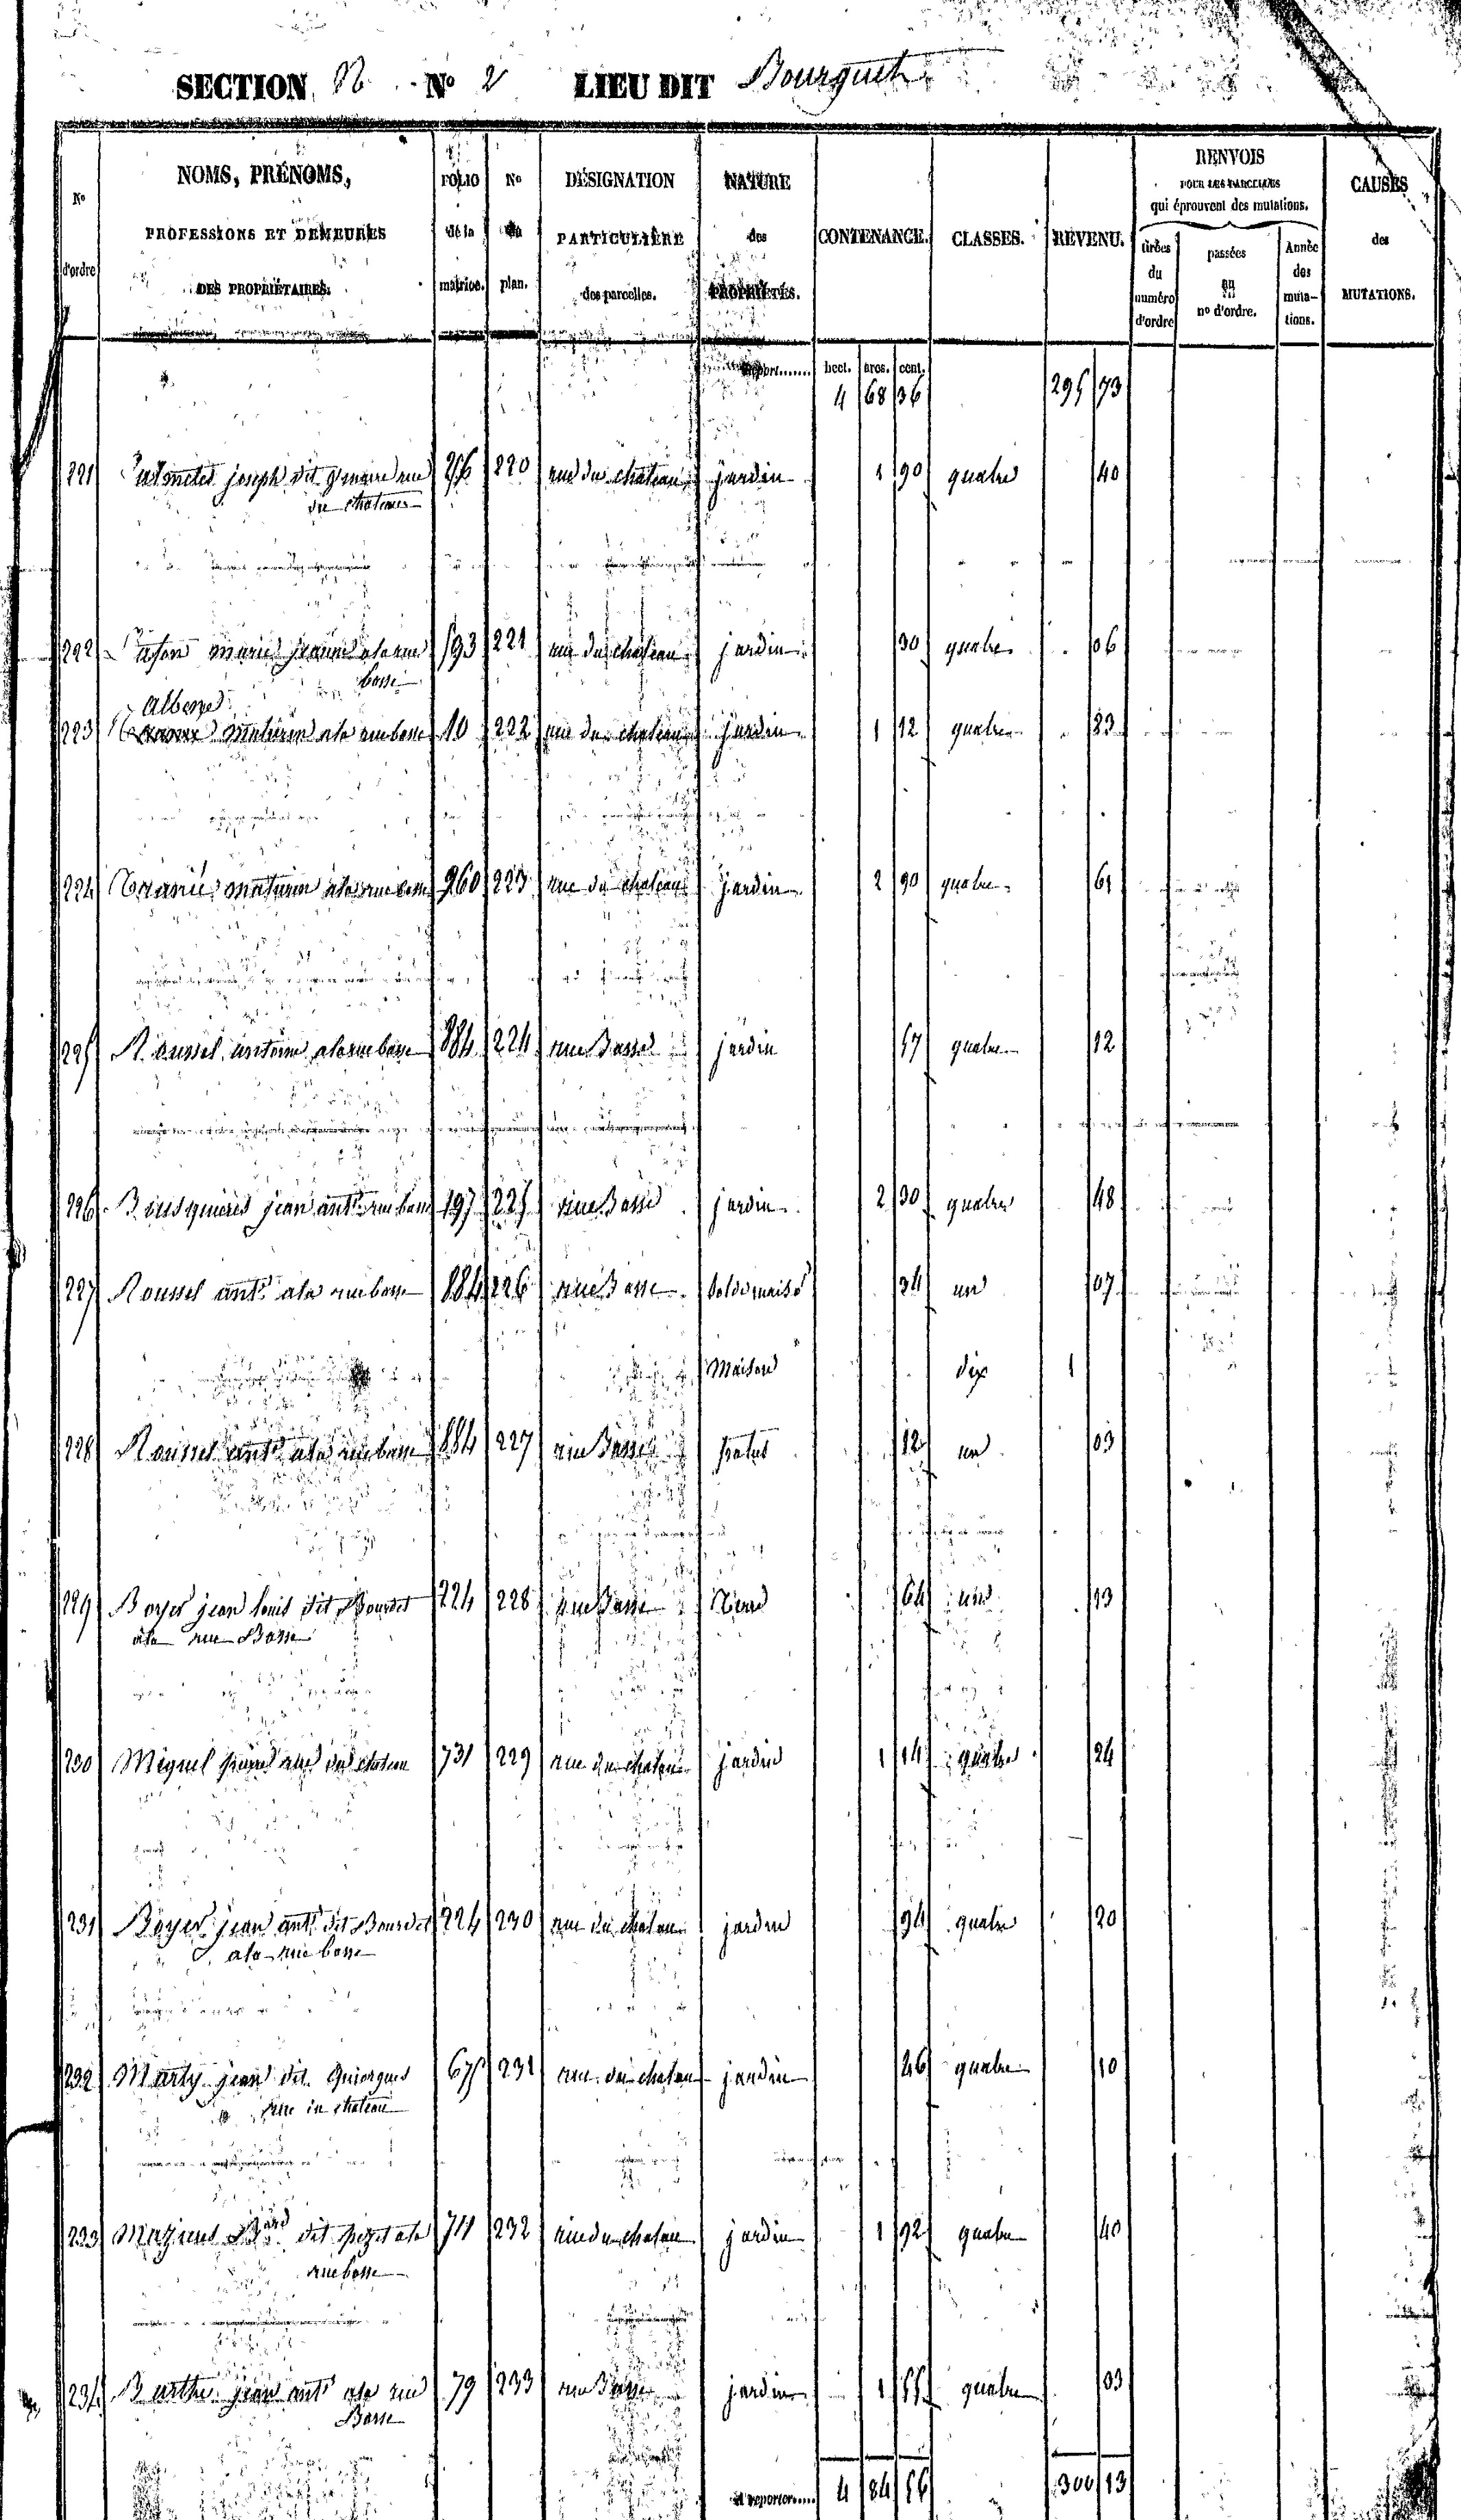 SECTION B No 2 LIEU DIT Bourguet
No d'ordre
NOMS, PRÉNOMS, PROFESSIONS ET DEMEURES DES PROPRIÉTAIRES.
FOLIO de la matrice.
No du plan.
DÉSIGNATION PARTICULIÈRE des parcelles.
NATURE des PROPRIÉTÉS.
CONTENANCE.
CLASSES.
REVENU.
RENVOIS POUR LES PARCELLES qui éprouvent des mutations.
tirées du numéro d'ordre
passées au no d'ordre.
Année des mutations.
CAUSES des MUTATIONS.
Report....... hect. ares. cent.
4 68 36 295 73
221 joseph dit rue 220 rue du chateau jardin 1 90 quatre 40
du chateau
222 marie ala rue 593 221 rue du chateau jardin 30 quatre 06
basse
Alberge
223 maturin ala rue basse 10 222 rue du chateau jardin 1 12 quatre 23
224 maturin ala rue basse 960 223 rue du chateau jardin 2 90 quatre 61
225 Roussel antoine ala rue basse 884 224 rue Basse jardin 57 quatre 12
226 Bousquieres jean ant. rue basse 197 225 rue Basse jardin 2 30 quatre 48
227 Roussel ant. ala rue basse 884 226 rue Basse sol de maison 34 un 07
Maison dix 1
228 Roussel ant. ala rue basse 884 227 rue Basse patus 12 un 03
229 Boyer jean louis dit Bourdet 224 228 rue Basse 64 un 13
ala rue Basse
230 Miquel rue du chateau 731 229 rue du chateau jardin 1 14 quatre 24
231 Boyer jean ant. dit Bourdet 224 230 rue du chateau jardin 94 quatre 20
ala rue basse
232 Marty jean dit 675 231 rue du chateau jardin 46 quatre 10
rue du chateau
233 dit ala 711 232 rue du chateau jardin 1 92 quatre 40
rue basse
234 Barthe jean ant. ala rue 79 233 rue Basse jardin 1 55 quatre 33
Basse
A reporter..... 4 84 56 300 13